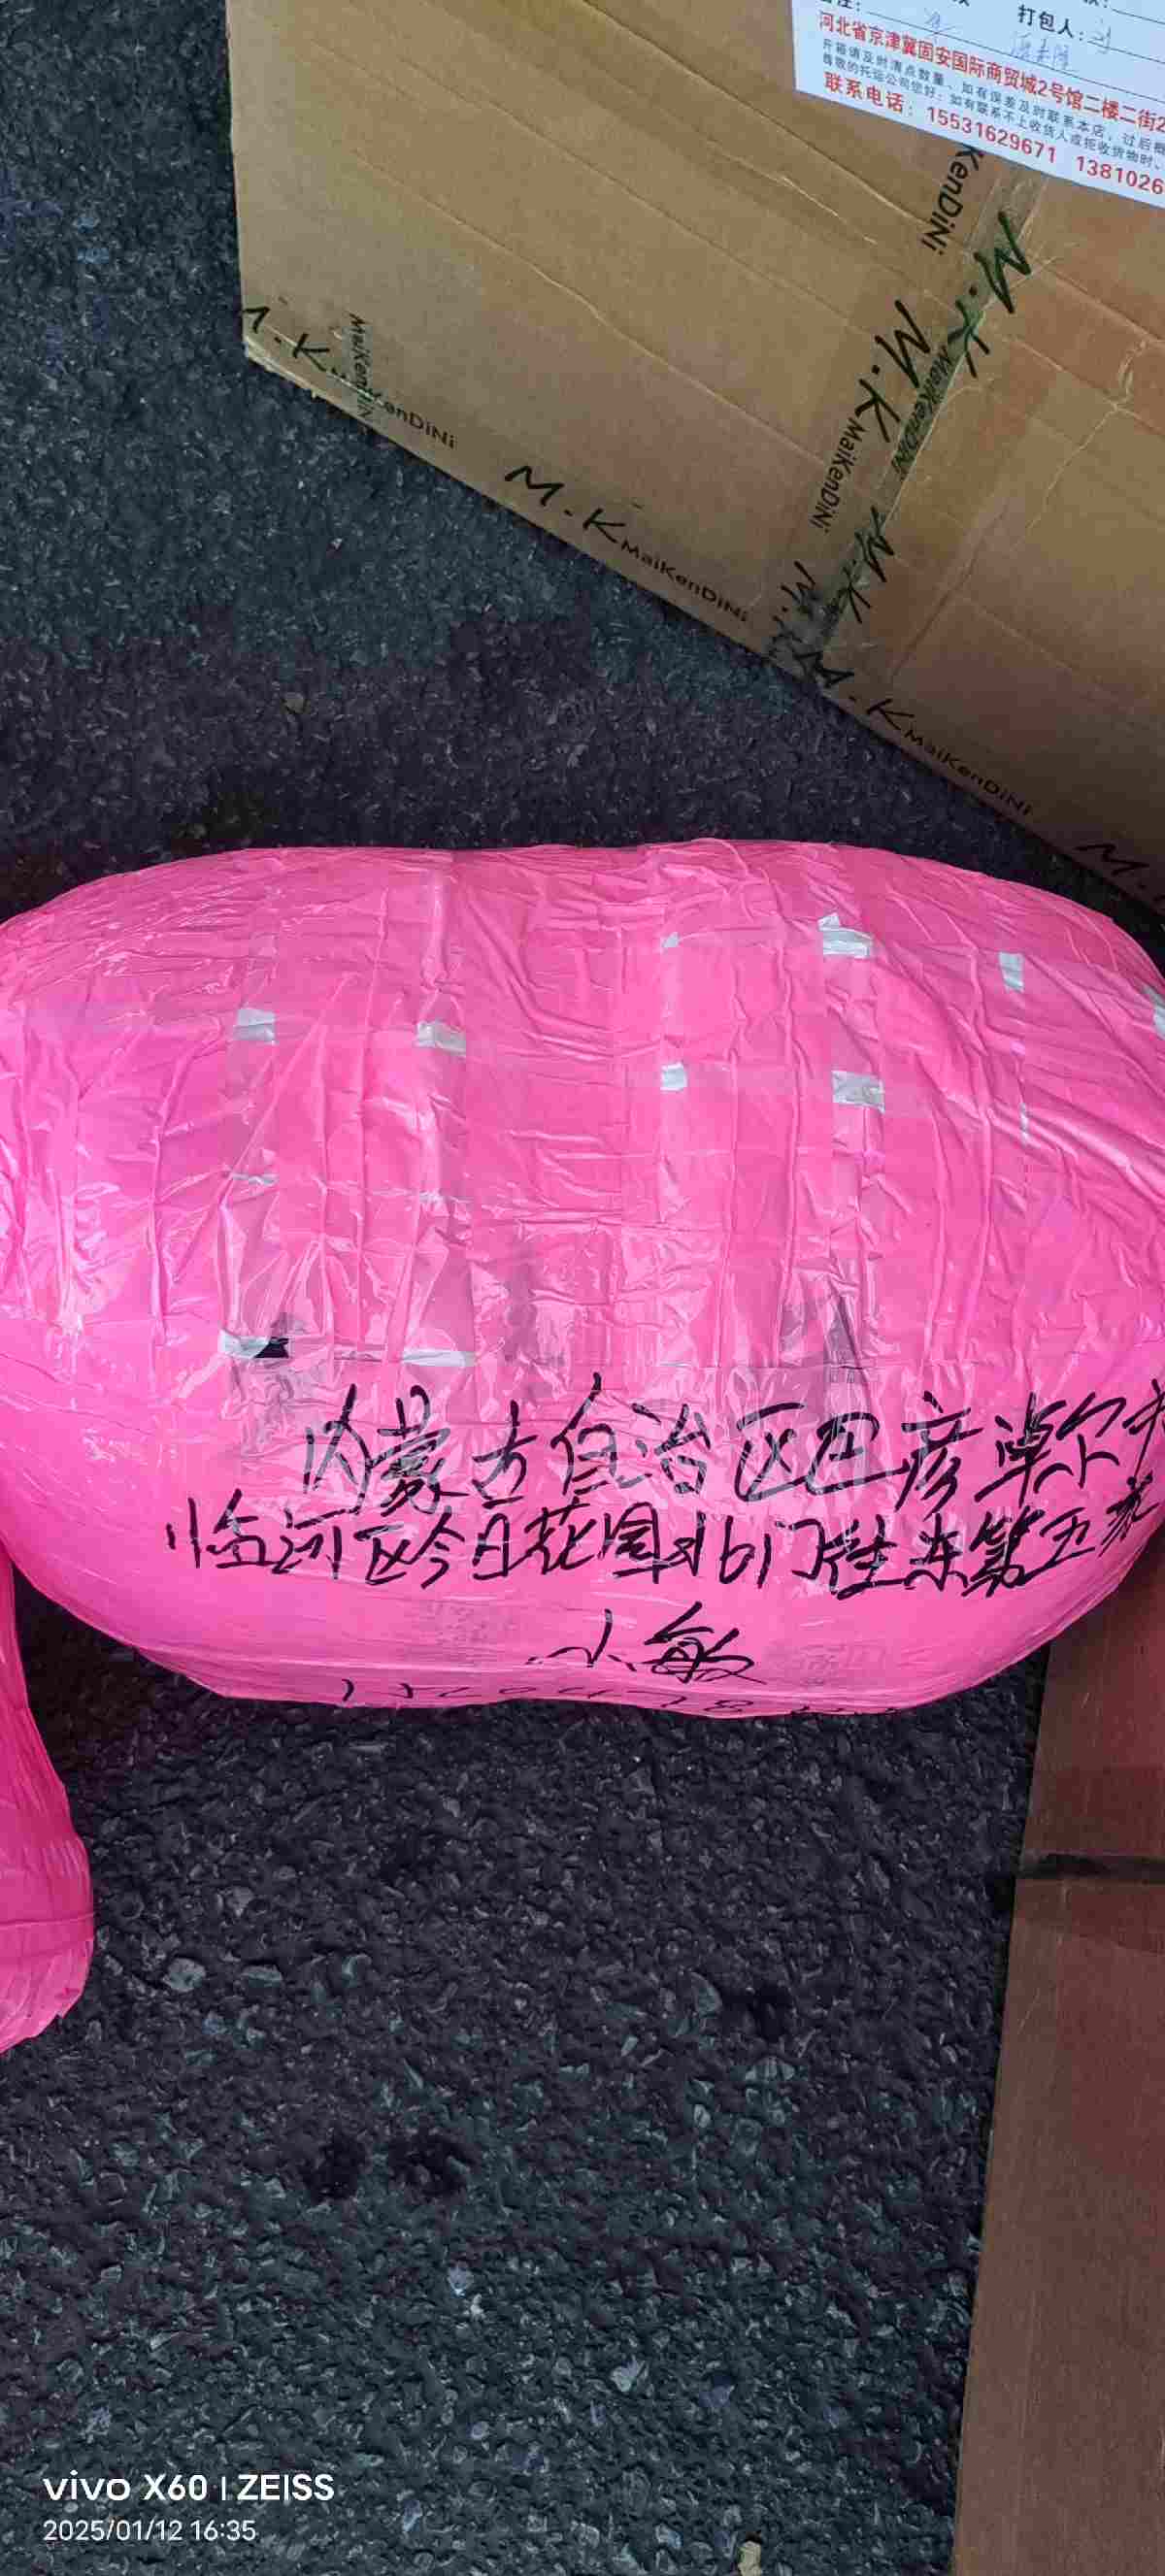 打包人：
河北省京津冀固安国际商贸城2号馆二楼二街2
开箱请及时清点数量、如有误差及时联系本店，过后概
尊敬的托运公司您好：如有联系不上收货人或拒收货物时、
联系电话：15531629671 1381026
KenDiNi
M.K
M.K MaiKenDiNi
MaiKenDiNi
M.K MaiKenDiNi
M.K
M.K MaiKenDiNi
M.K MaiKenDiNi
内蒙古自治区巴彦淖尔市
临河区今日花园北门往东第五家
小敏
vivo X60 | ZEISS
2025/01/12 16:35